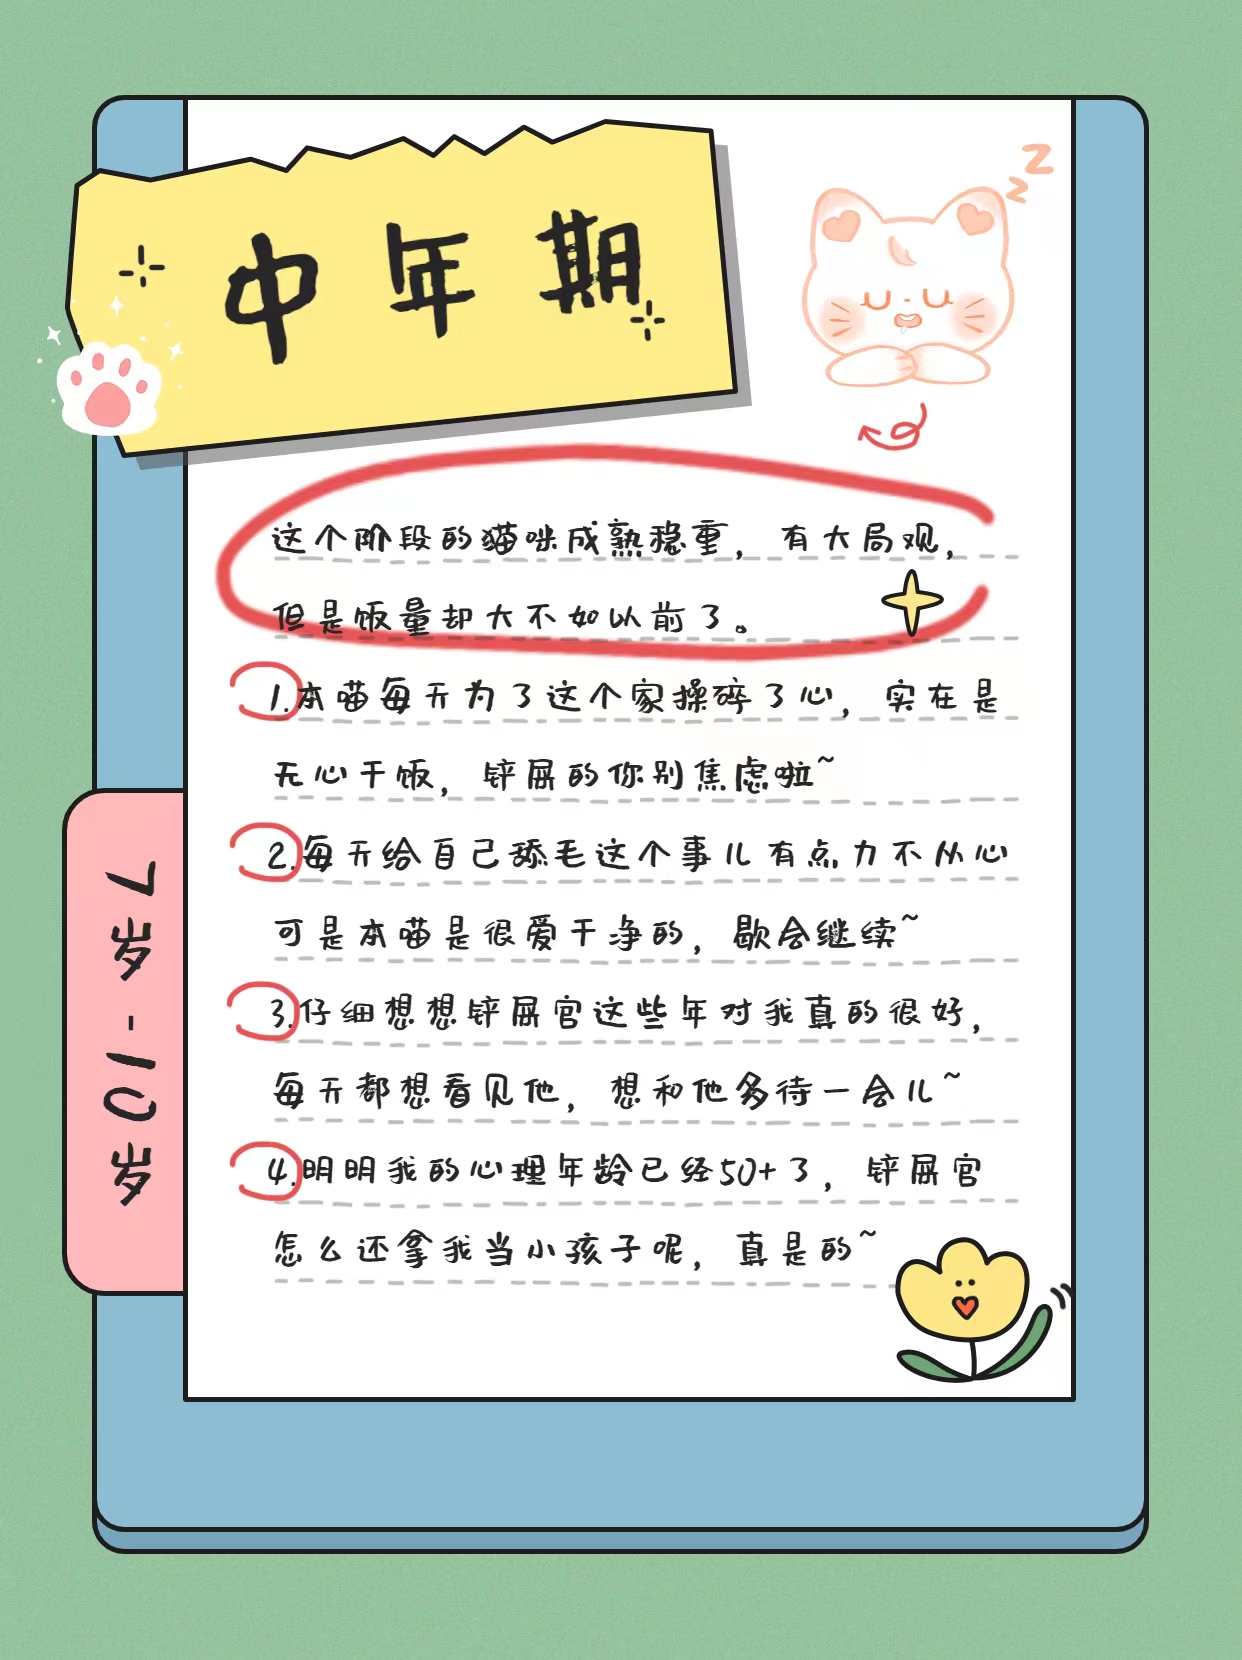 中年期
z
z
这个阶段的猫咪成熟稳重，有大局观，
但是饭量却大不如以前了。
1.本喵每天为了这个家操碎了心，实在是
无心干饭，铲屎的你别焦虑啦~
2.每天给自己舔毛这个事儿有点力不从心
可是本喵是很爱干净的，歇会继续~
3.仔细想想铲屎官这些年对我真的很好，
每天都想看见他，想和他多待一会儿~
4.明明我的心理年龄已经50+了，铲屎官
怎么还拿我当小孩子呢，真是的~
7岁-10岁